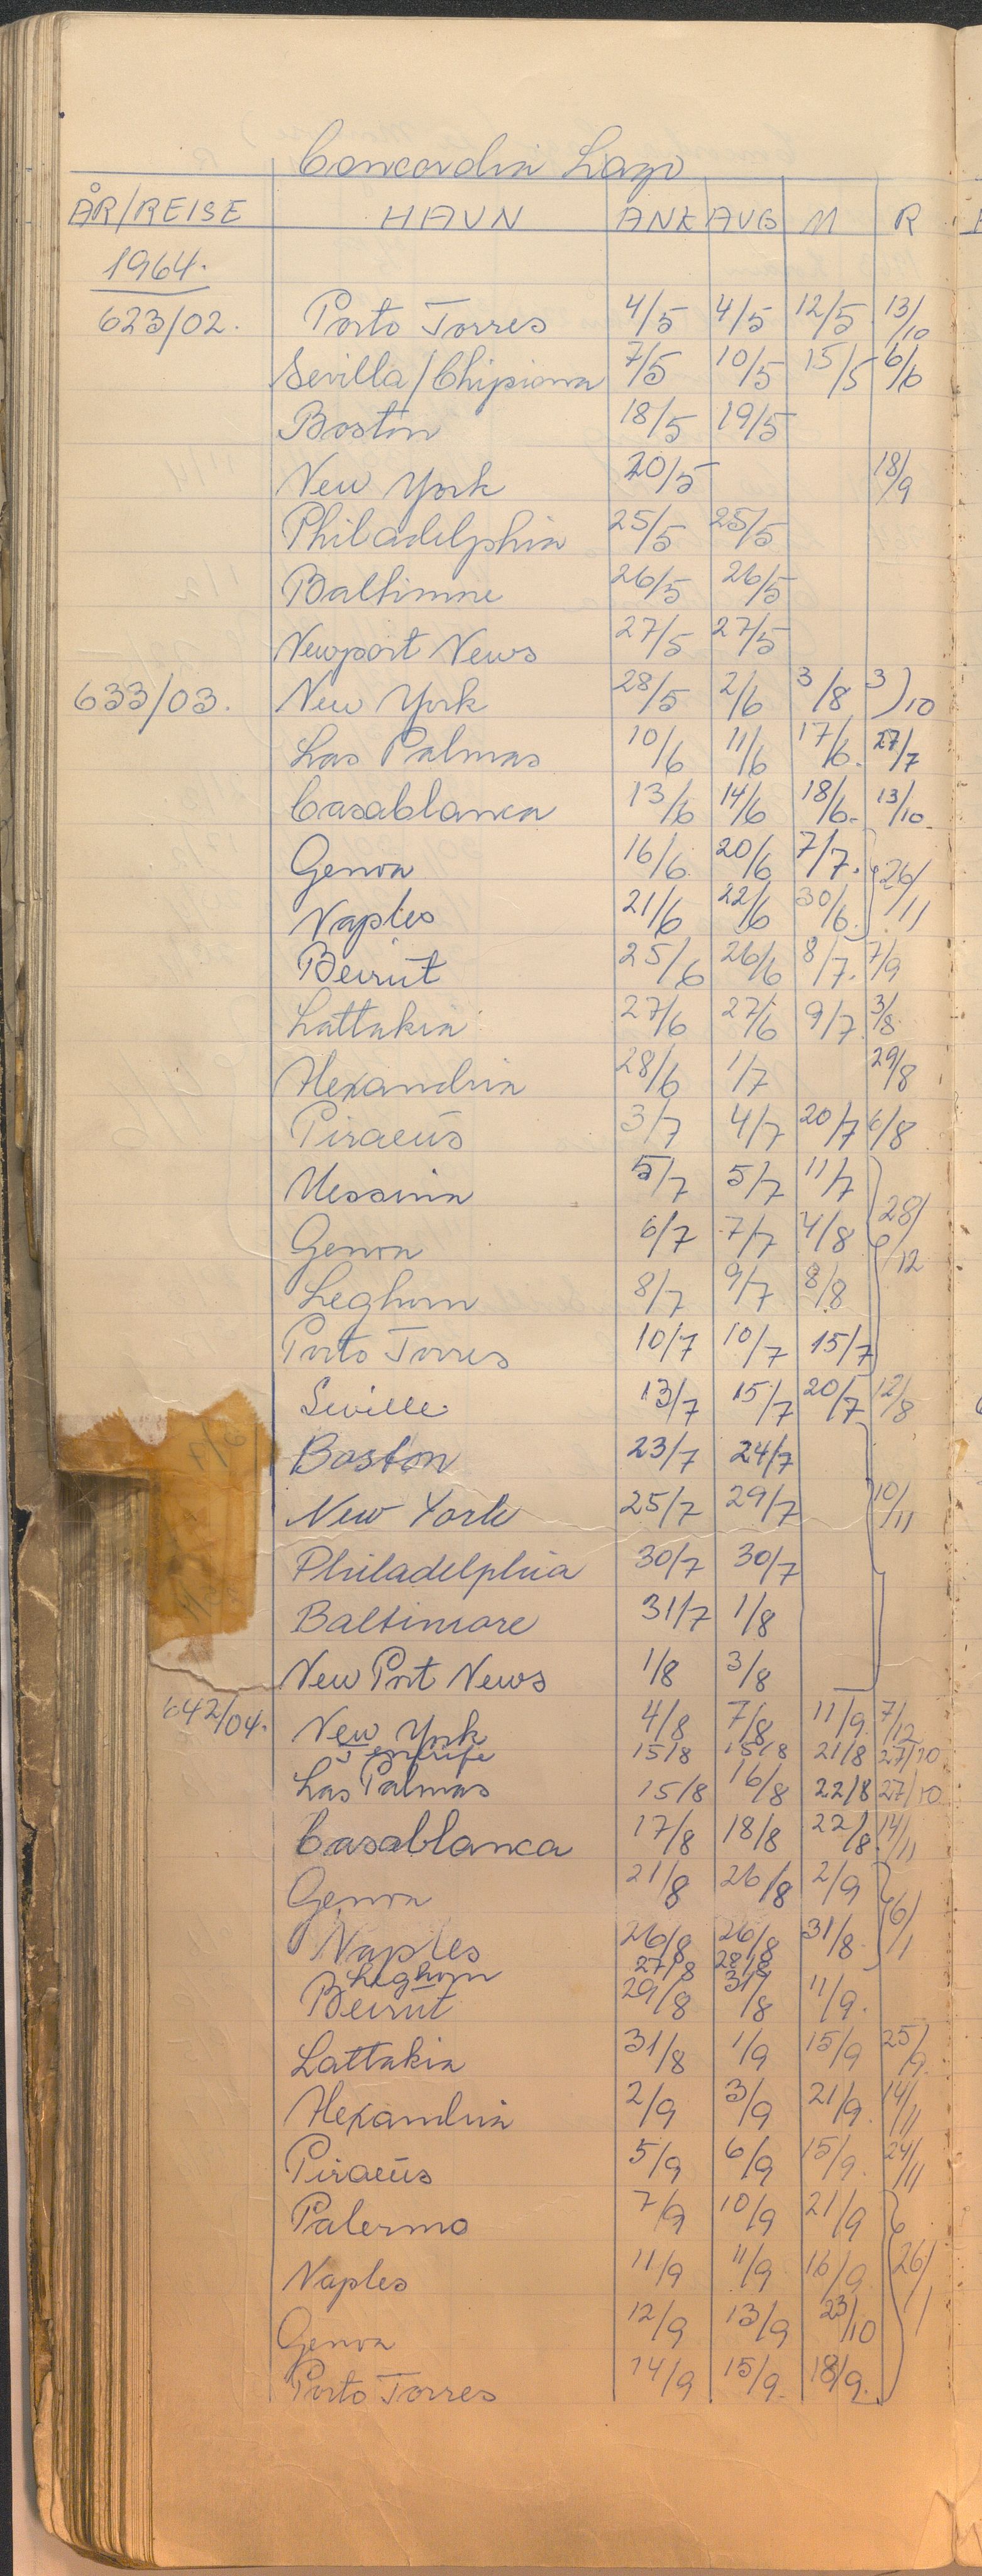 Concordia Lago
ÅR/REISE HAVN ANK AVG M R
1964.
623/02. Porto Torres 4/5 4/5 12/5 13/10
Sevilla/Chipiona 7/5 10/5 15/5 6/6
Boston 18/5 19/5
New York 20/5 18/9
Philadelphia 25/5 25/5
Baltimore 26/5 26/5
Newport News 27/5 27/5
633/03. New York 28/5 2/6 3/8 3/10
Las Palmas 10/6 11/6 17/6. 27/7
Casablanca 13/6 14/6 18/6. 13/10.
Genoa 16/6. 20/6 7/7. 26/11
Naples 21/6 22/6 30/6.
Beirut 25/6 26/6 8/7. 7/9
Lattakia 27/6 27/6 9/7 3/8.
Alexandria 28/6 1/7 29/8
Piraeus 3/7 4/7 20/7 6/8
Messina 5/7 5/7 11/7 28/12
Genoa 6/7 7/7 4/8
Leghorn 8/7 9/7 8/8
Porto Torres 10/7 10/7 15/7
Seville 13/7 15/7 20/7 12/8
Boston 23/7 24/7
New York 25/7 29/7 10/11
Philadelphia 30/7 30/7
Baltimore 31/7 1/8
New Port News 1/8 3/8
642/04. New York 4/8 7/8 11/9. 7/12
Tenerife 15/8 15/8 21/8 27/10
Las Palmas 15/8 16/8 22/8 27/10
Casablanca 17/8 18/8 22/8 14/11
Genoa 21/8 26/8 2/9 6/1
Naples 26/8 26/8 31/8
Leghorn 27/8 28/8
Beirut 29/8 31/8 11/9.
Lattakia 31/8 1/9 15/9 25/9.
Alexandria 2/9 3/9 21/9. 14/11
Piraeus 5/9 6/9 15/9. 24/11
Palermo 7/9 10/9 21/9
Naples 11/9 11/9 16/9 26/1
Genoa 12/9 13/9 23/10
Porto Torres 14/9 15/9. 18/9.